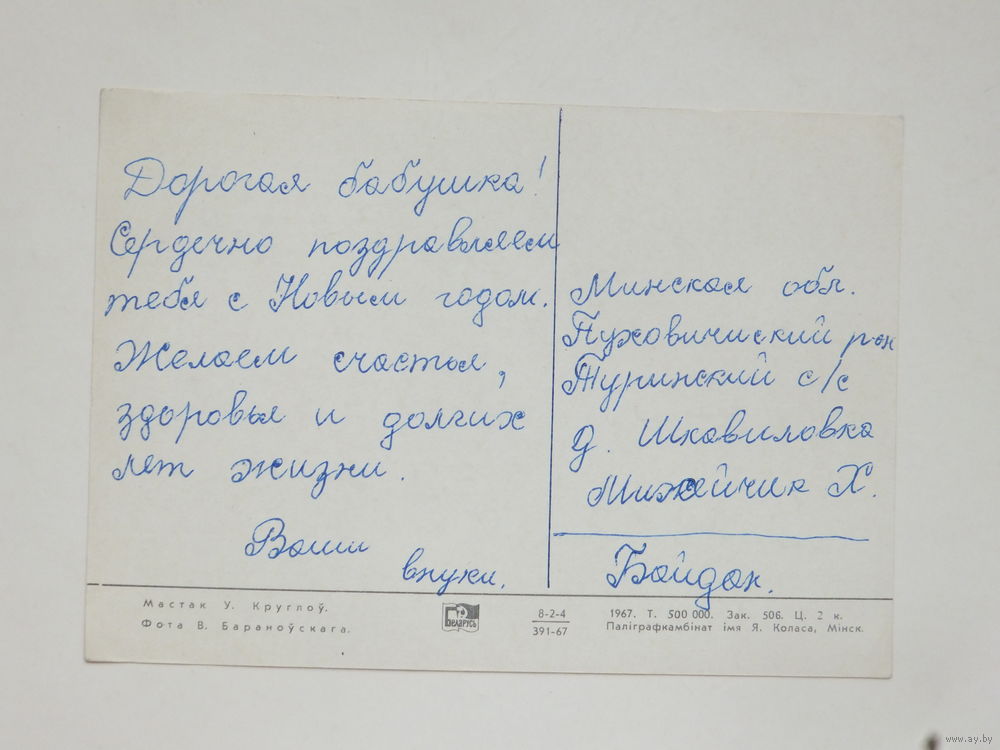 Дорогая бабушка!
Сердечно поздравляем
тебя с Новым годом.
Желаем счастья,
здоровья и долгих
лет жизни.
Ваши
внуки.
Минская обл.
Пуховичиский рон
Туринский с/с
д. Шкавиловка
Мижейчик Х.
Бойдак.
Мастак У. Круглоў.
Фота В. Бараноўскага.
Беларусь
8-2-4
391-67
1967. Т. 500 000. Зак. 506. Ц. 2 к.
Паліграфкамбінат імя Я. Коласа, Мінск.
www.ay.by